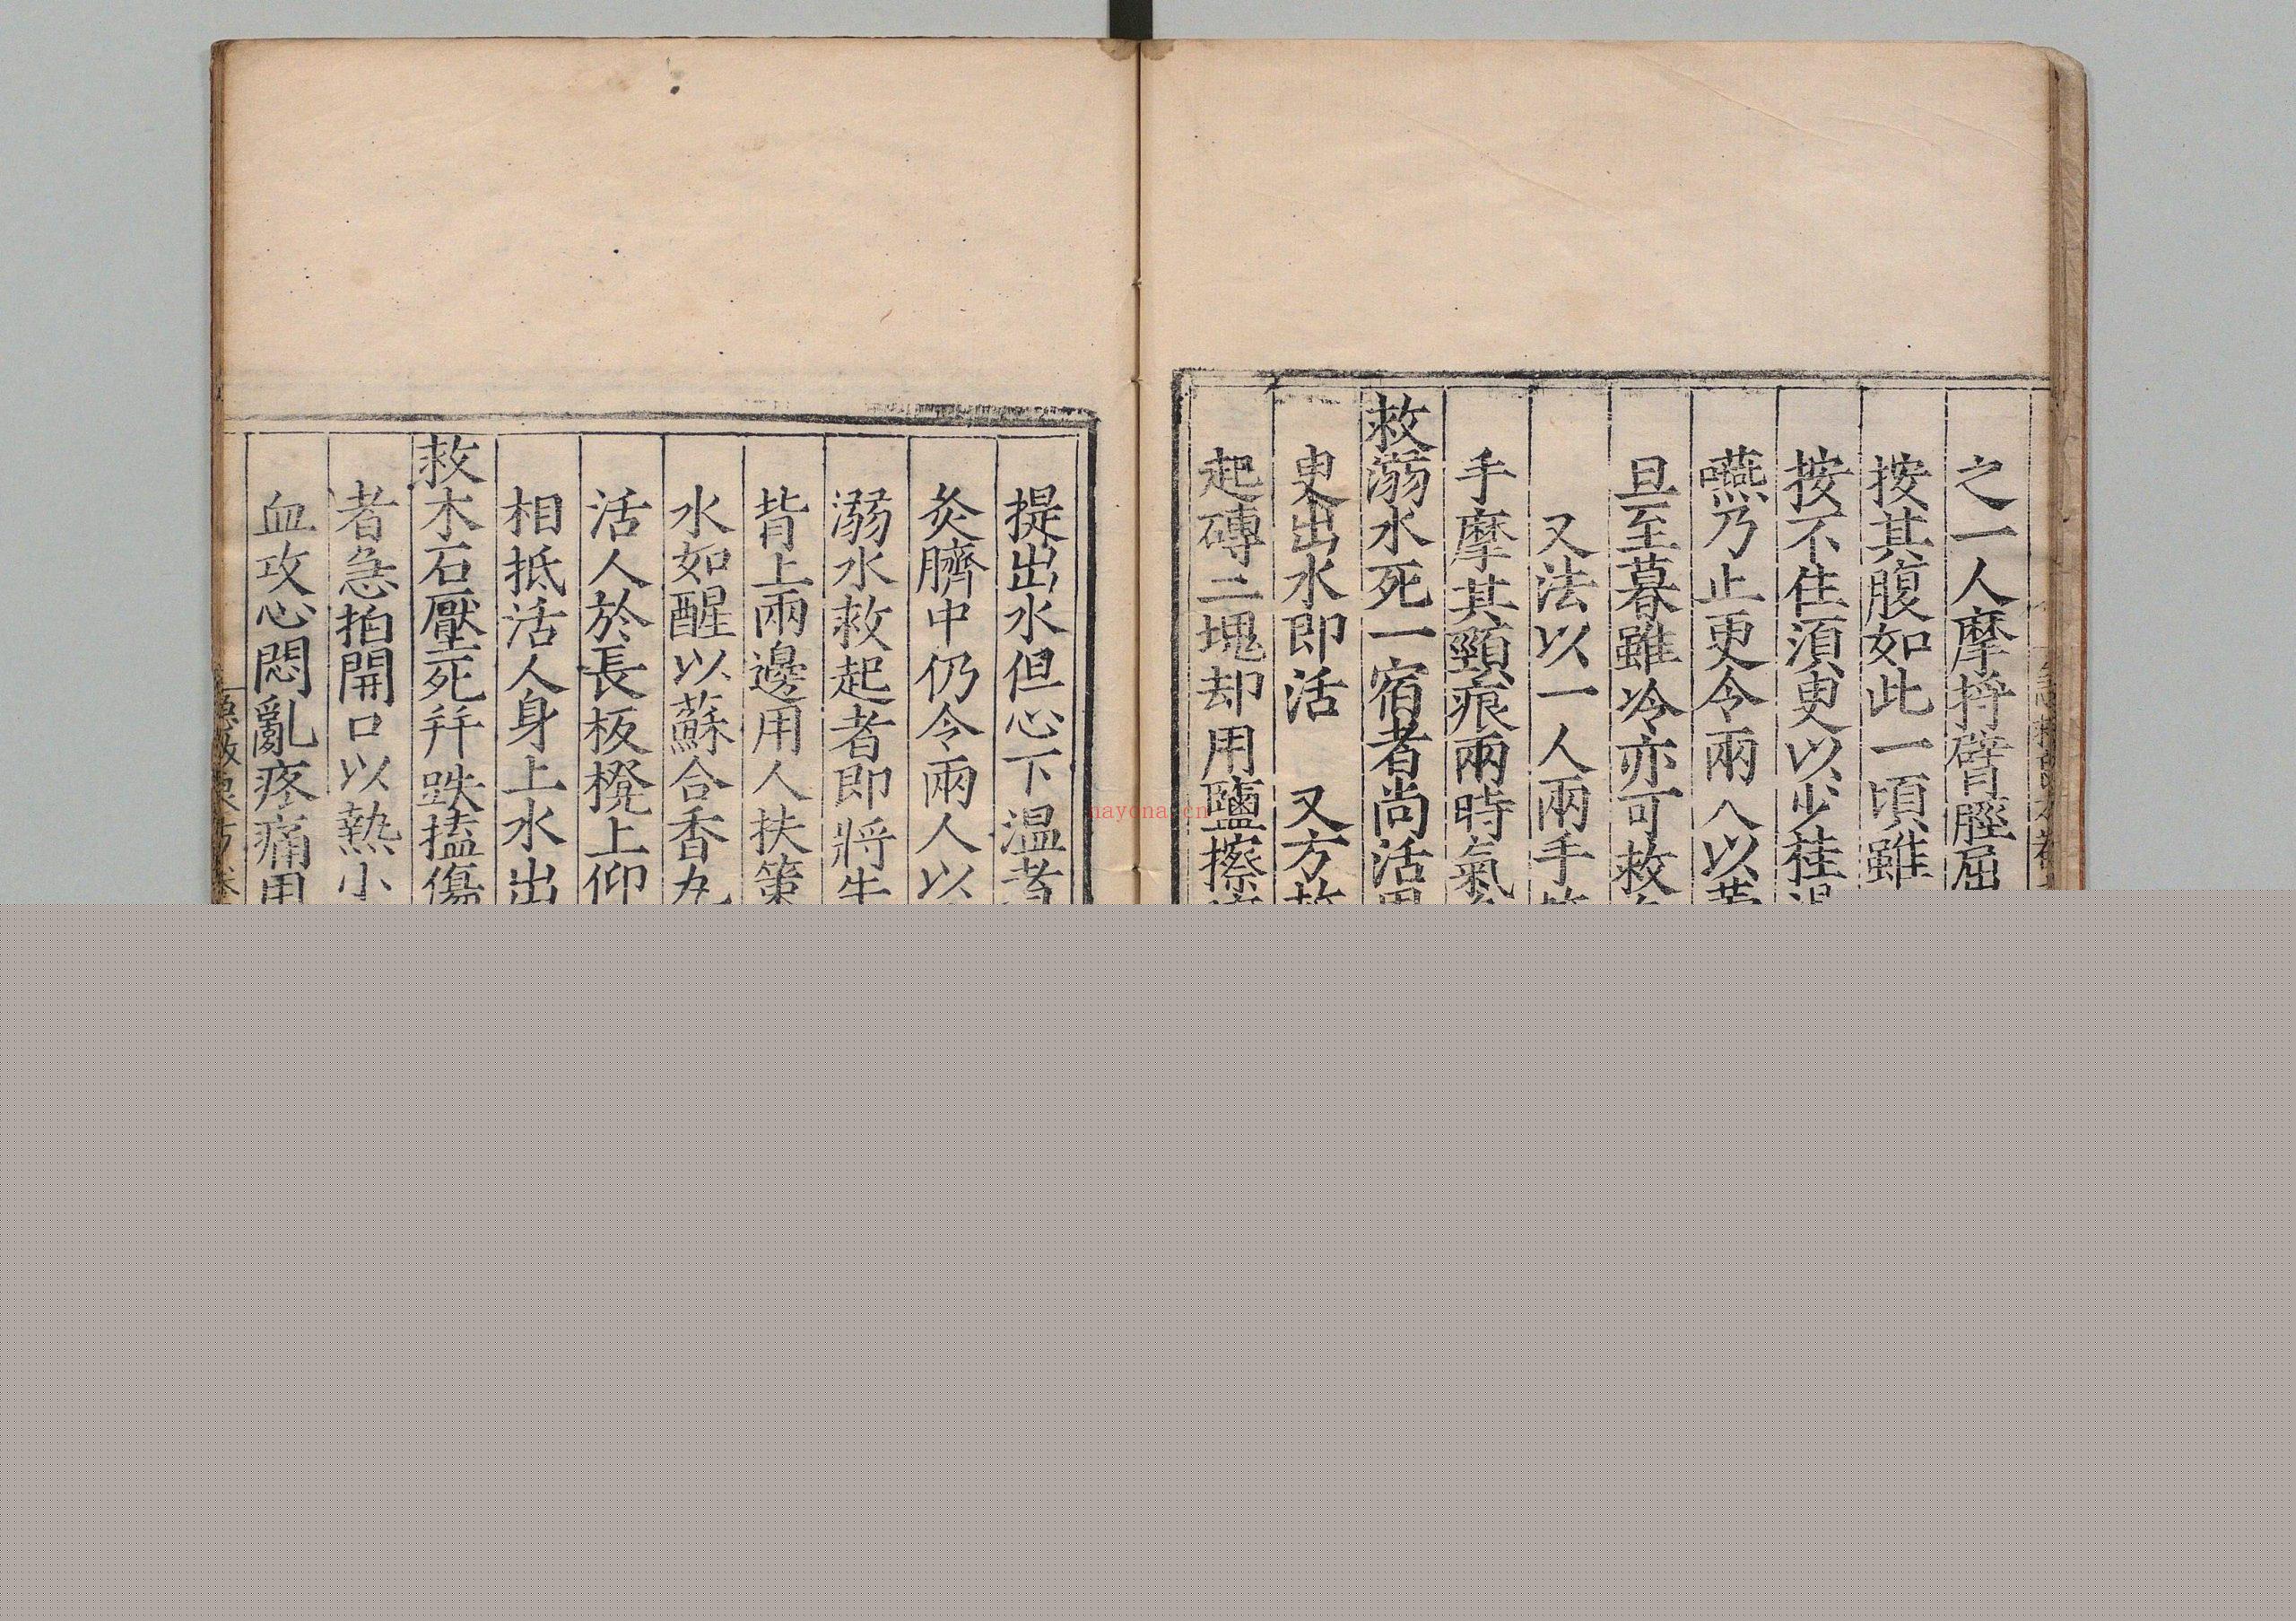 之一人摩捋臂脛屈
按其腹如此一頃雖
按不住須臾以少桂湯
嚥乃止更令兩人以
旦至暮雖冷亦可救
又法以一人兩手
手摩其頸痕兩時氣
救溺水死一宿者尚活用
臾出水即活　又方救
起磚二塊却用鹽擦
提出水但心下温者
灸臍中仍令兩人以
溺水救起者即將牛
背上兩邊用人扶策
水如醒以蘇合香丸
活人於長板櫈上仰
相抵活人身上水出
救木石壓死并跌搕傷
者急拍開口以熱小
血攻心悶亂疼痛用
nayona.cn